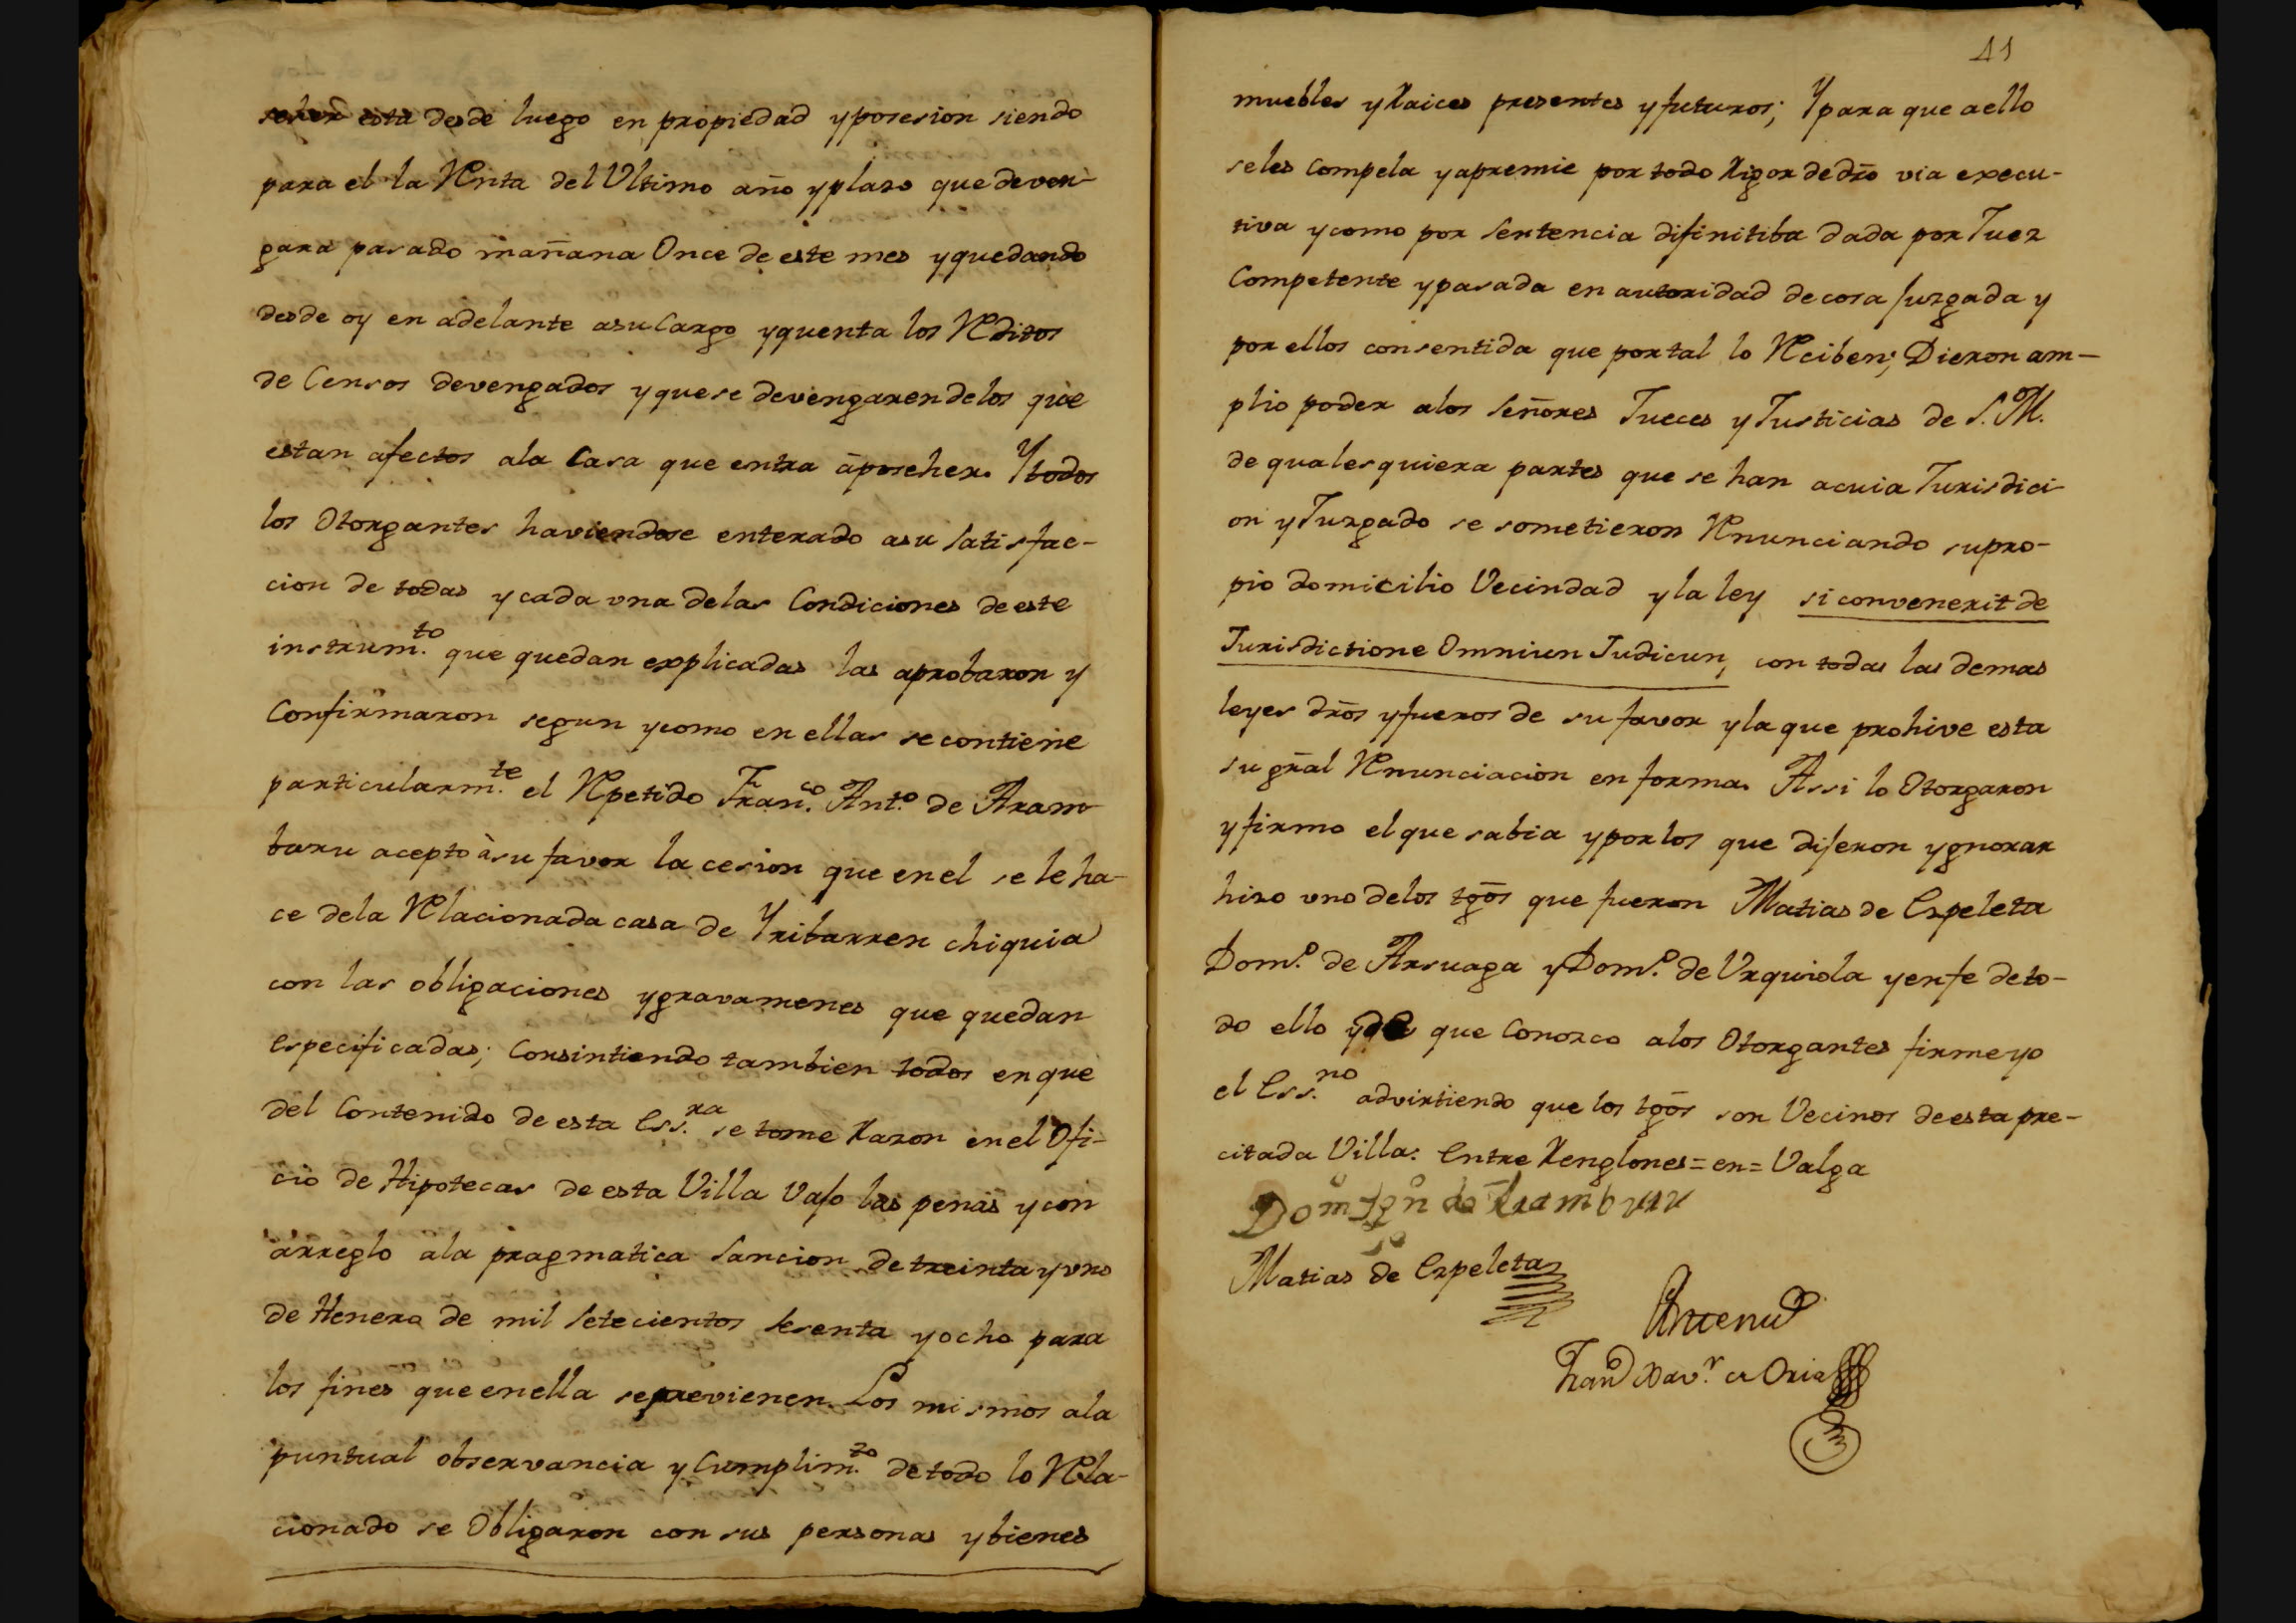 esta desde luego en propiedad y posesion siendo
para el la Renta del Ultimo año y plazo que deven-
gara pasado mañana Once de este mes y quedando
desde oy en adelante a su Cargo y quenta los Reditos
de Censos devengados y que se devengaren de los que
estan afectos a la Casa que entra à poseher. Y todos
los Otorgantes haviendose enterado a su satisfac-
cion de todas y cada una de las Condiciones de este
instrum.to que quedan explicadas las aprobaron y
Confirmaron segun y como en ellas se contiene
particularm.te el Repetido Fran.co Ant.o de Aram-
buru acepto à su favor la cesion que en el se le ha-
ce de la Relacionada casa de Yribarren chiquia
con las obligaciones y gravamenes que quedan
especificadas; Consintiendo tambien todos en que
del Contenido de esta Ess.ra se tome Razon en el Ofi-
cio de Hipotecas de esta Villa vajo las penas y con
arreglo a la pragmatica Sancion de treinta y uno
de Henero de mil Setecientos sesenta y ocho para
los fines que en ella se previenen. Los mismos a la
puntual observancia y Cumplim.to de todo lo Rela-
cionado se Obligaron con sus personas y bienes
41
muebles y Raices presentes y futuros; Y para que a ello
se les Compela y apremie por todo Rigor de dro via execu-
tiva y como por Sentencia difinitiba dada por Juez
Competente y pasada en autoridad de cosa Juzgada y
por ellos consentida que por tal lo Reciben; Dieron am-
plio poder a los Señores Jueces y Justicias de S. M.
de qualesquiera partes que se han a cuia Jurisdici-
on y Juzgado se sometieron Renunciando su pro-
pio domicilio Vecindad y la ley si convenerit de
Jurisdictione Omniun Judicun, con todas las demas
leyes dros y fueros de su favor y la que prohive esta
su gral Renunciacion en forma. Assi lo Otorgaron
y firmo el que sabia y por los que dijeron ygnorar
hizo uno de los tgos que fueron Matias de Ezpeleta
Dom.o de Arsuaga y Dom.o de Urquiola y en fe de to-
do ello y de que Conozco a los Otorgantes firme yo
el Ess.no advirtiendo que los tgos son Vecinos de esta pre-
citada Villa: Entre Renglones = en = Valga
Dom Ign de Aramburu
Matias de Ezpeleta
Ante mi
Fran Xav.r de Oria